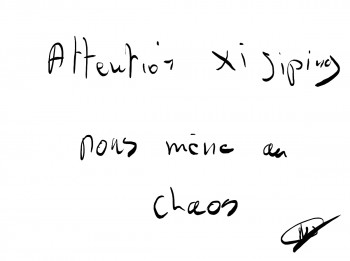 Attention xi jiping
nous mène au
chaos